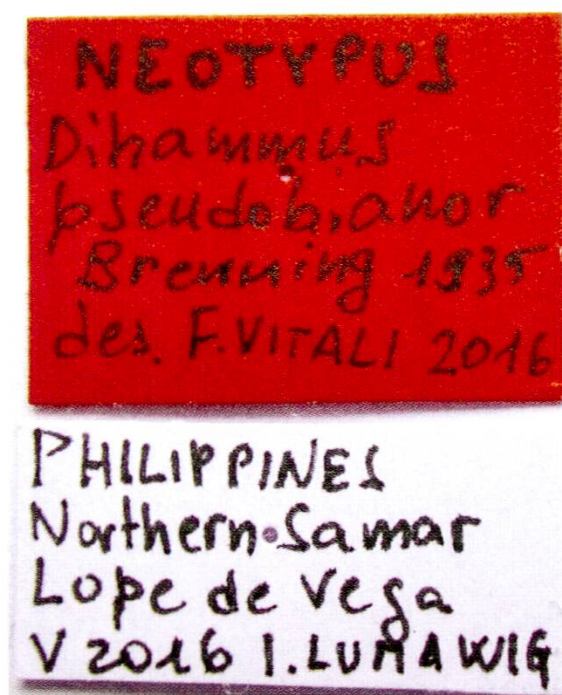 NEOTYPUS
Dihammus
pseudobianor
Breuning 1935
des. F. VITALI 2016
PHILIPPINES
Northern Samar
Lope de Vega
V 2016 I. LUMAWIG